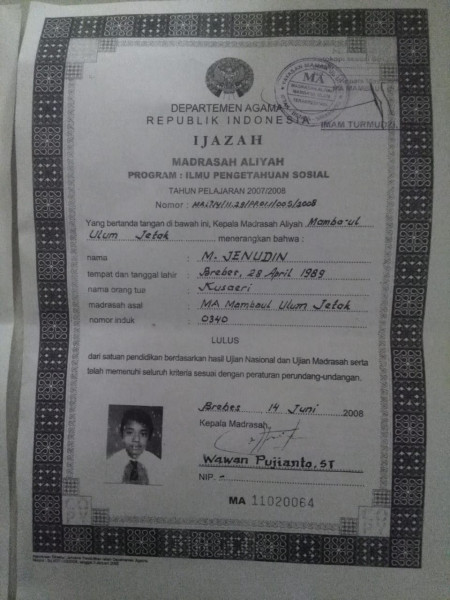 MA
IMAM TURMUDZI
DEPARTEMEN AGAMA
REPUBLIK INDONESIA
IJAZAH
MADRASAH ALIYAH
PROGRAM : ILMU PENGETAHUAN SOSIAL
TAHUN PELAJARAN 2007/2008
Nomor : /11.29/PP.01/005/2008
Yang bertanda tangan di bawah ini, Kepala Madrasah Aliyah Mamba'ul
Ulum Jetok menerangkan bahwa :
nama : M. JENUDIN
tempat dan tanggal lahir : Brebes, 28 April 1989
nama orang tua : Kusaeri
madrasah asal : MA Mambaul Ulum Jetok
nomor induk : 0340
LULUS
dari satuan pendidikan berdasarkan hasil Ujian Nasional dan Ujian Madrasah serta
telah memenuhi seluruh kriteria sesuai dengan peraturan perundang-undangan.
Brebes 14 Juni 2008
Kepala Madrasah,
Wawan Pujianto, ST
NIP. -
MA 11020064